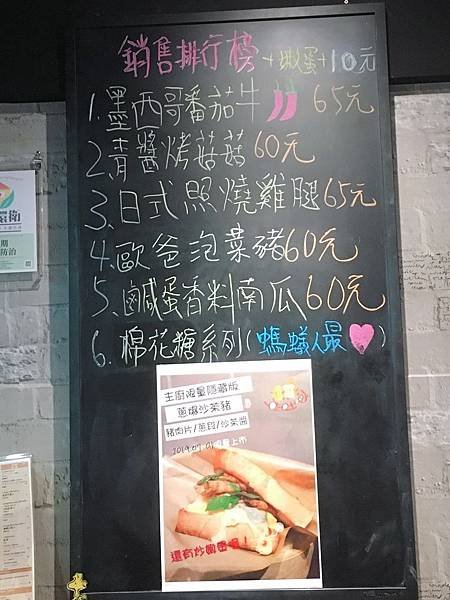 銷售排行榜 +嫩蛋+10元
1.墨西哥番茄牛 65元
2.青醬烤菇菇60元
3.日式照燒雞腿65元
4.歐爸泡菜豬60元
5.鹹蛋香料南瓜60元
6.棉花糖系列(螞蟻人最♥)
主廚限量隱藏版
蔥爆沙茶豬
豬肉片/蔥段/沙茶醬
還有炒嫩蛋喔!